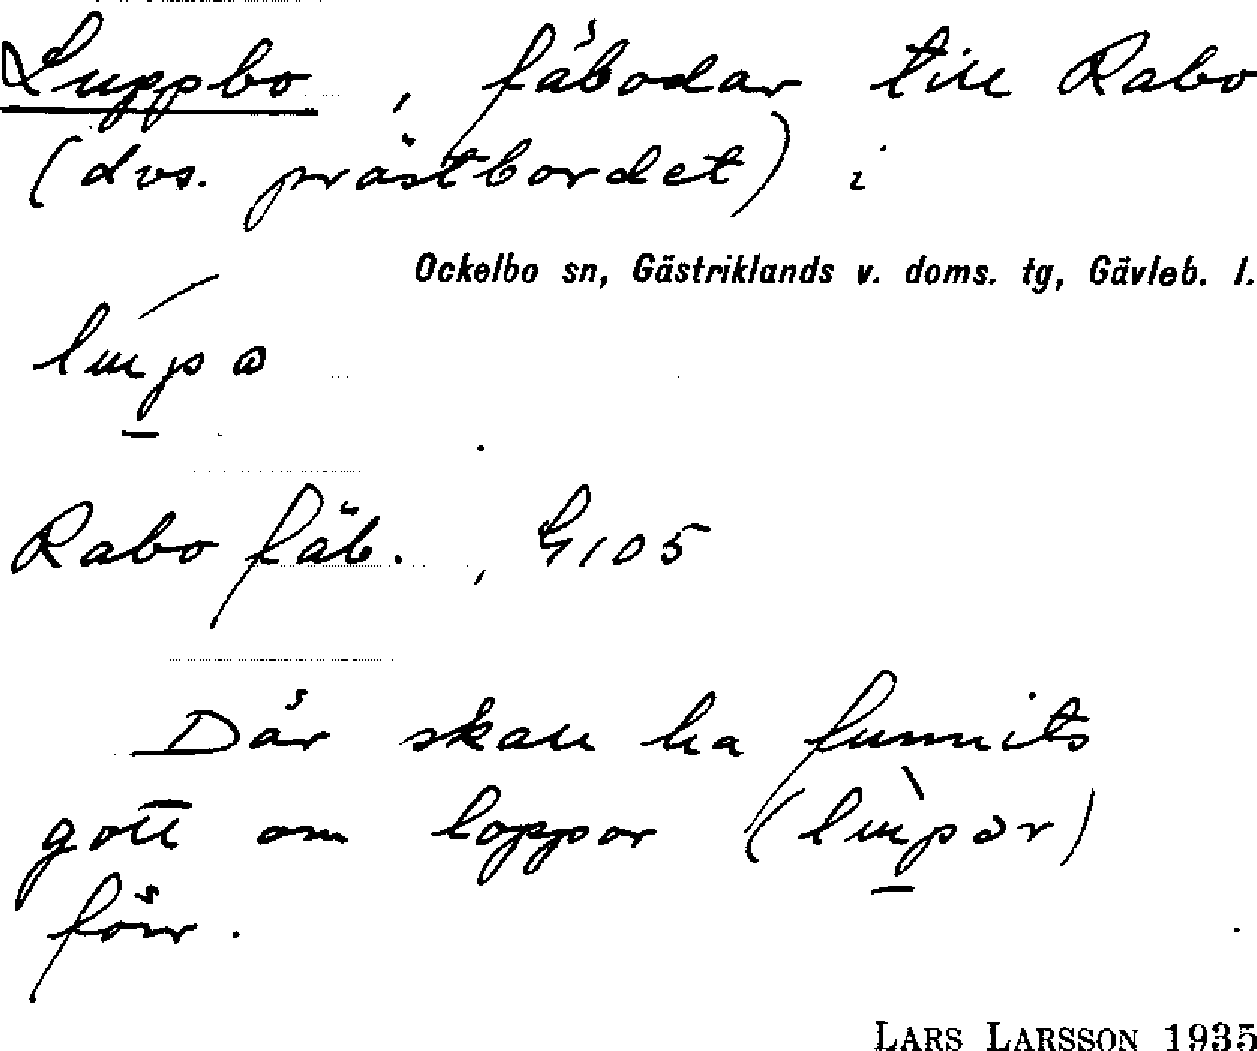 Luppbo, fäbodar till Rabo
(dvs. prästbordet) i
Ockelbo sn, Gästriklands v. doms. tg, Gävleb. l.
Rabo fäb., G105
Där skall ha funnits
gott om loppor (lùpər)
förr.
LARS LARSSON 1935